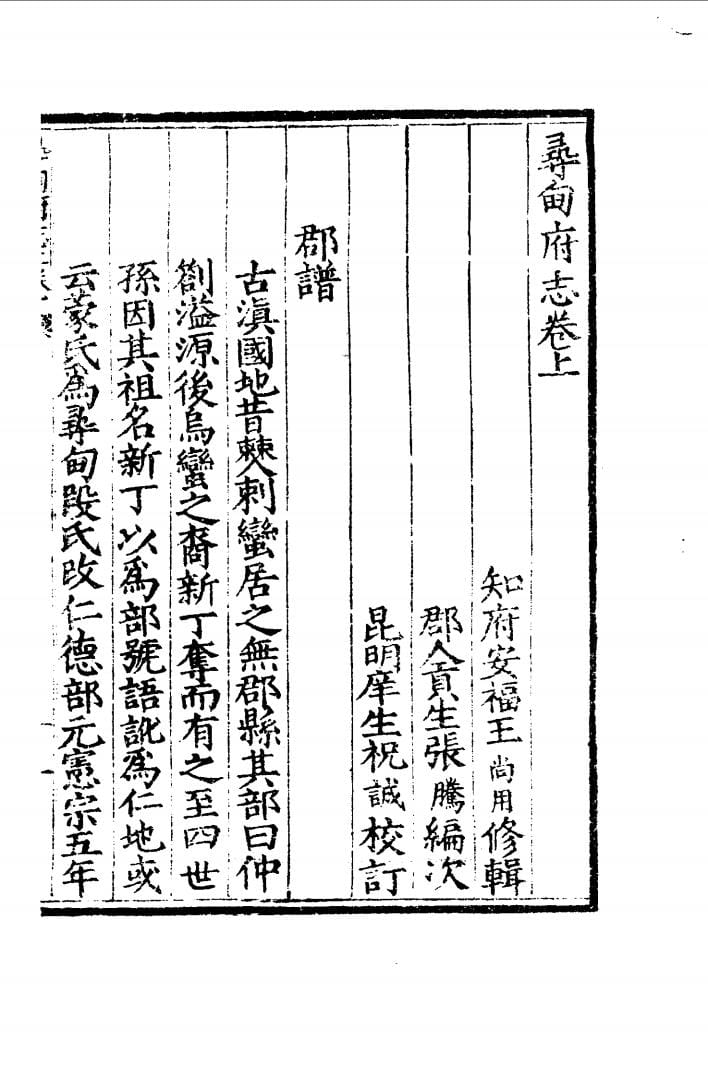 尋甸府志卷上
知府安福王尚用修輯
郡人貢生張騰編次
昆明庠生祝誠校訂
郡譜
古滇國地昔僰人刺蠻居之無郡縣其部曰仲
劄溢源後烏蠻之裔新丁奪而有之至四世
孫因其祖名新丁以爲部號語訛爲仁地或
云蒙氏爲尋甸叚氏改仁德部元憲宗五年